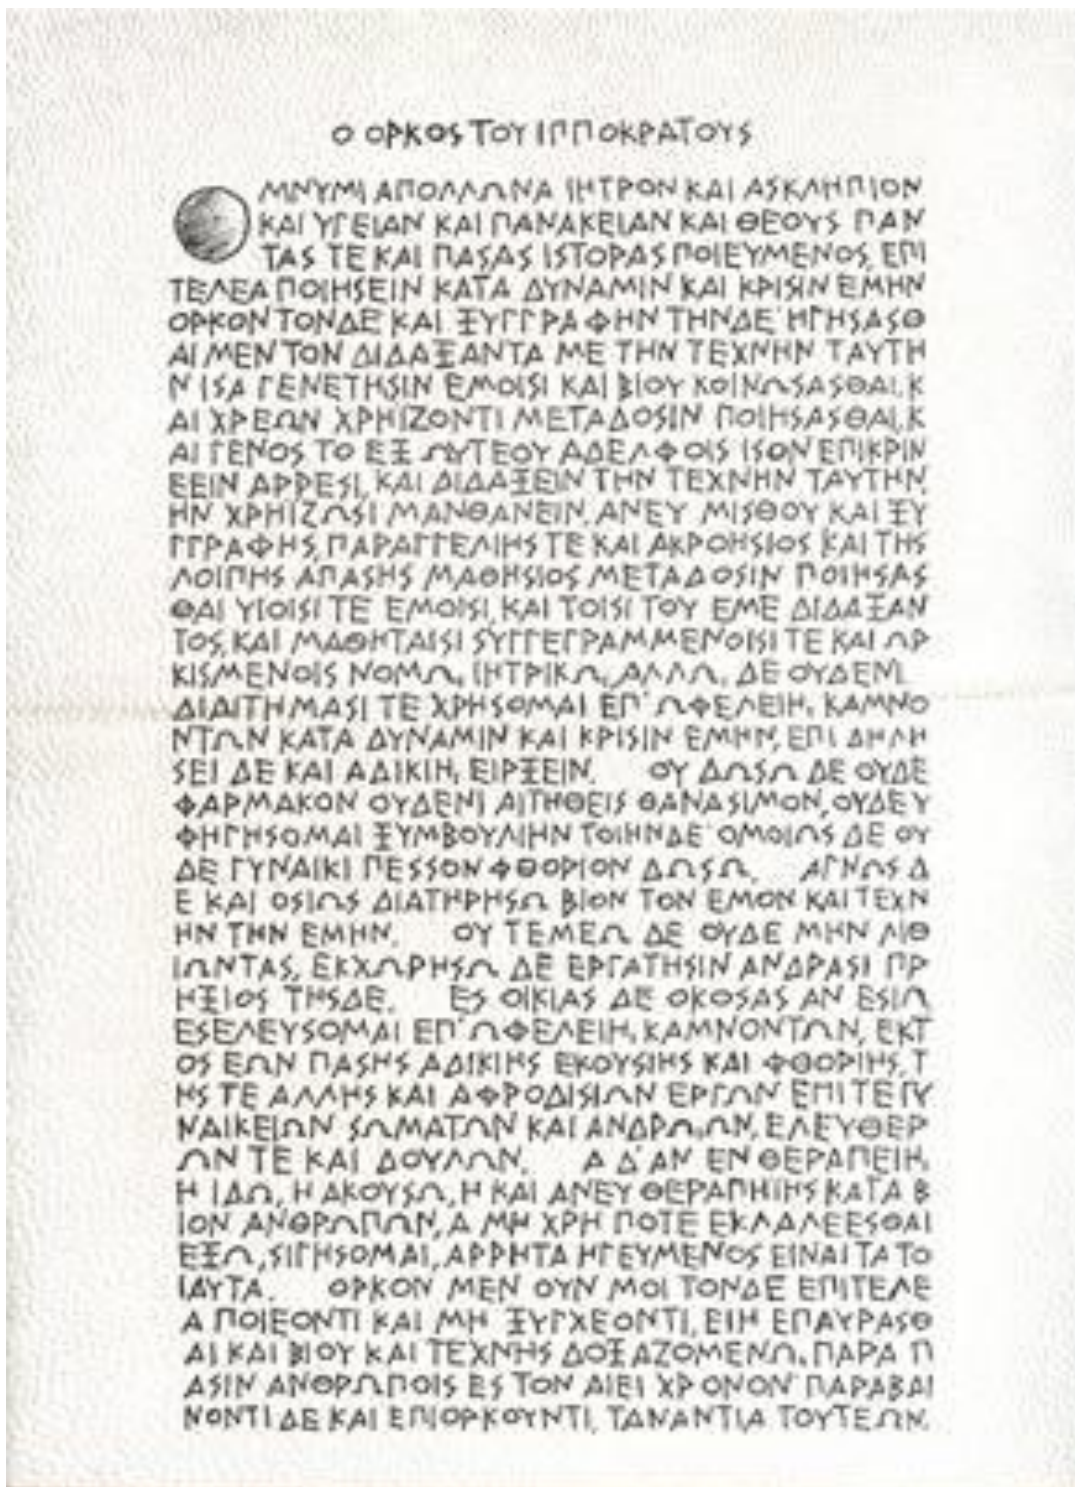 Ο ΟΡΚΟΣ ΤΟΥ ΙΠΠΟΚΡΑΤΟΥΣ
ΟΜΝΥΜΙ ΑΠΟΛΛΩΝΑ ΙΗΤΡΟΝ ΚΑΙ ΑΣΚΛΗΠΙΟΝ
ΚΑΙ ΥΓΕΙΑΝ ΚΑΙ ΠΑΝΑΚΕΙΑΝ ΚΑΙ ΘΕΟΥΣ ΠΑΝ
ΤΑΣ ΤΕ ΚΑΙ ΠΑΣΑΣ ΙΣΤΟΡΑΣ ΠΟΙΕΥΜΕΝΟΣ, ΕΠΙ
ΤΕΛΕΑ ΠΟΙΗΣΕΙΝ ΚΑΤΑ ΔΥΝΑΜΙΝ ΚΑΙ ΚΡΙΣΙΝ ΕΜΗΝ
ΟΡΚΟΝ ΤΟΝΔΕ ΚΑΙ ΞΥΓΓΡΑΦΗΝ ΤΗΝΔΕ· ΗΓΗΣΑΣΘ
ΑΙ ΜΕΝ ΤΟΝ ΔΙΔΑΞΑΝΤΑ ΜΕ ΤΗΝ ΤΕΧΝΗΝ ΤΑΥΤΗ
Ν ΙΣΑ ΓΕΝΕΤΗΣΙΝ ΕΜΟΙΣΙ ΚΑΙ ΒΙΟΥ ΚΟΙΝΩΣΑΣΘΑΙ, Κ
ΑΙ ΧΡΕΩΝ ΧΡΗΙΖΟΝΤΙ ΜΕΤΑΔΟΣΙΝ ΠΟΙΗΣΑΣΘΑΙ, Κ
ΑΙ ΓΕΝΟΣ ΤΟ ΕΞ ΩΥΤΕΟΥ ΑΔΕΛΦΟΙΣ ΙΣΟΝ ΕΠΙΚΡΙΝ
ΕΕΙΝ ΑΡΡΕΣΙ, ΚΑΙ ΔΙΔΑΞΕΙΝ ΤΗΝ ΤΕΧΝΗΝ ΤΑΥΤΗΝ,
ΗΝ ΧΡΗΙΖΩΣΙ ΜΑΝΘΑΝΕΙΝ, ΑΝΕΥ ΜΙΣΘΟΥ ΚΑΙ ΞΥ
ΓΓΡΑΦΗΣ, ΠΑΡΑΓΓΕΛΙΗΣ ΤΕ ΚΑΙ ΑΚΡΟΗΣΙΟΣ ΚΑΙ ΤΗΣ
ΛΟΙΠΗΣ ΑΠΑΣΗΣ ΜΑΘΗΣΙΟΣ ΜΕΤΑΔΟΣΙΝ ΠΟΙΗΣΑΣ
ΘΑΙ ΥΙΟΙΣΙ ΤΕ ΕΜΟΙΣΙ, ΚΑΙ ΤΟΙΣΙ ΤΟΥ ΕΜΕ ΔΙΔΑΞΑΝ
ΤΟΣ, ΚΑΙ ΜΑΘΗΤΑΙΣΙ ΣΥΓΓΕΓΡΑΜΜΕΝΟΙΣΙ ΤΕ ΚΑΙ ΩΡ
ΚΙΣΜΕΝΟΙΣ ΝΟΜΩι ΙΗΤΡΙΚΩι, ΑΛΛΩι ΔΕ ΟΥΔΕΝΙ.
ΔΙΑΙΤΗΜΑΣΙ ΤΕ ΧΡΗΣΟΜΑΙ ΕΠ' ΩΦΕΛΕΙΗι ΚΑΜΝΟ
ΝΤΩΝ ΚΑΤΑ ΔΥΝΑΜΙΝ ΚΑΙ ΚΡΙΣΙΝ ΕΜΗΝ, ΕΠΙ ΔΗΛΗ
ΣΕΙ ΔΕ ΚΑΙ ΑΔΙΚΙΗι ΕΙΡΞΕΙΝ. ΟΥ ΔΩΣΩ ΔΕ ΟΥΔΕ
ΦΑΡΜΑΚΟΝ ΟΥΔΕΝΙ ΑΙΤΗΘΕΙΣ ΘΑΝΑΣΙΜΟΝ, ΟΥΔΕ Υ
ΦΗΓΗΣΟΜΑΙ ΞΥΜΒΟΥΛΙΗΝ ΤΟΙΗΝΔΕ· ΟΜΟΙΩΣ ΔΕ ΟΥ
ΔΕ ΓΥΝΑΙΚΙ ΠΕΣΣΟΝ ΦΘΟΡΙΟΝ ΔΩΣΩ. ΑΓΝΩΣ Δ
Ε ΚΑΙ ΟΣΙΩΣ ΔΙΑΤΗΡΗΣΩ ΒΙΟΝ ΤΟΝ ΕΜΟΝ ΚΑΙ ΤΕΧΝ
ΗΝ ΤΗΝ ΕΜΗΝ. ΟΥ ΤΕΜΕΩ ΔΕ ΟΥΔΕ ΜΗΝ ΛΙΘ
ΙΩΝΤΑΣ, ΕΚΧΩΡΗΣΩ ΔΕ ΕΡΓΑΤΗΣΙΝ ΑΝΔΡΑΣΙ ΠΡ
ΗΞΙΟΣ ΤΗΣΔΕ. ΕΣ ΟΙΚΙΑΣ ΔΕ ΟΚΟΣΑΣ ΑΝ ΕΣΙΩ
ΕΣΕΛΕΥΣΟΜΑΙ ΕΠ' ΩΦΕΛΕΙΗι ΚΑΜΝΟΝΤΩΝ, ΕΚΤ
ΟΣ ΕΩΝ ΠΑΣΗΣ ΑΔΙΚΙΗΣ ΕΚΟΥΣΙΗΣ ΚΑΙ ΦΘΟΡΙΗΣ, Τ
ΗΣ ΤΕ ΑΛΛΗΣ ΚΑΙ ΑΦΡΟΔΙΣΙΩΝ ΕΡΓΩΝ ΕΠΙ ΤΕ ΓΥ
ΝΑΙΚΕΙΩΝ ΣΩΜΑΤΩΝ ΚΑΙ ΑΝΔΡΩιΩΝ, ΕΛΕΥΘΕΡ
ΩΝ ΤΕ ΚΑΙ ΔΟΥΛΩΝ. Α Δ' ΑΝ ΕΝ ΘΕΡΑΠΕΙΗι
Η ΙΔΩ, Η ΑΚΟΥΣΩ, Η ΚΑΙ ΑΝΕΥ ΘΕΡΑΠΗΙΗΣ ΚΑΤΑ Β
ΙΟΝ ΑΝΘΡΩΠΩΝ, Α ΜΗ ΧΡΗ ΠΟΤΕ ΕΚΛΑΛΕΕΣΘΑΙ
ΕΞΩ, ΣΙΓΗΣΟΜΑΙ, ΑΡΡΗΤΑ ΗΓΕΥΜΕΝΟΣ ΕΙΝΑΙ ΤΑ ΤΟ
ΙΑΥΤΑ. ΟΡΚΟΝ ΜΕΝ ΟΥΝ ΜΟΙ ΤΟΝΔΕ ΕΠΙΤΕΛΕ
Α ΠΟΙΕΟΝΤΙ ΚΑΙ ΜΗ ΞΥΓΧΕΟΝΤΙ, ΕΙΗ ΕΠΑΥΡΑΣΘ
ΑΙ ΚΑΙ ΒΙΟΥ ΚΑΙ ΤΕΧΝΗΣ ΔΟΞΑΖΟΜΕΝΩι ΠΑΡΑ Π
ΑΣΙΝ ΑΝΘΡΩΠΟΙΣ ΕΣ ΤΟΝ ΑΙΕΙ ΧΡΟΝΟΝ· ΠΑΡΑΒΑΙ
ΝΟΝΤΙ ΔΕ ΚΑΙ ΕΠΙΟΡΚΟΥΝΤΙ, ΤΑΝΑΝΤΙΑ ΤΟΥΤΕΩΝ.